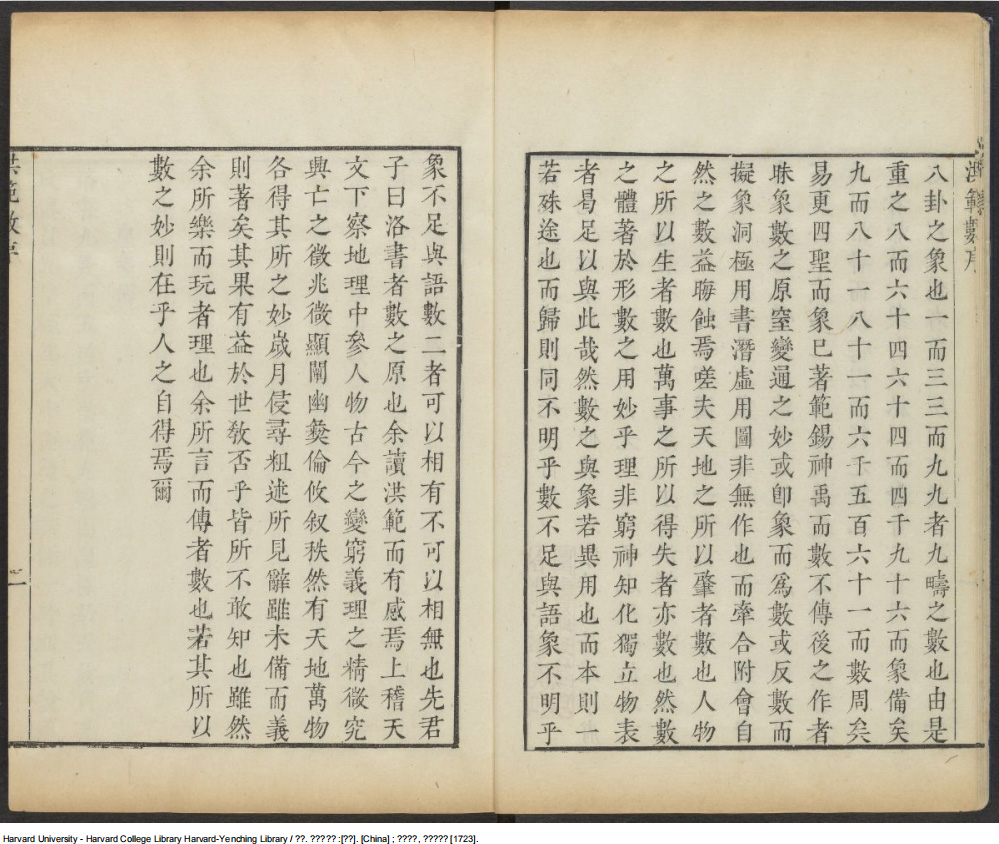 八卦之象也一而三三而九九者九疇之數也由是
重之八而六十四六十四而四千九十六而象備矣
九而八十一八十一而六千五百六十一而數周矣
易更四聖而象已著範錫神禹而數不傳後之作者
昧象數之原窒變通之妙或卽象而爲數或反數而
擬象洞極用書潛虛用圖非無作也而牽合附會自
然之數益晦蝕焉嗟夫天地之所以肇者數也人物
之所以生者數也萬事之所以得失者亦數也然數
之體著於形數之用妙乎理非窮神知化獨立物表
者曷足以與此哉然數之與象若異用也而本則一
若殊途也而歸則同不明乎數不足與語象不明乎
象不足與語數二者可以相有不可以相無也先君
子曰洛書者數之原也余讀洪範而有感焉上稽天
文下察地理中參人物古今之變窮義理之精微究
興亡之徵兆微顯闡幽彝倫攸叙秩然有天地萬物
各得其所之妙歲月侵尋粗述所見辭雖未備而義
則著矣其果有益於世教否乎皆所不敢知也雖然
余所樂而玩者理也余所言而傳者數也若其所以
數之妙則在乎人之自得焉爾
Harvard University - Harvard College Library Harvard-Yenching Library / ??. ????? :[??]. [China] ; ????, ????? [1723].